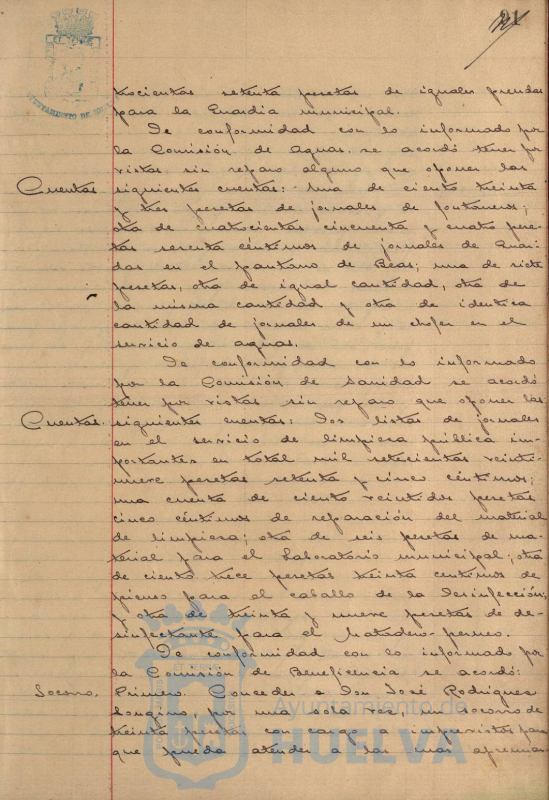 21
AYUNTAMIENTO DE
trocientas setenta pesetas de iguales prendas
para la Guardia municipal.
De conformidad con lo informado por
la Comisión de Aguas se acordó tener por
vistas sin reparo alguno que oponer las
Cuentas siguientes cuentas: una de ciento treinta
y tres pesetas de jornales de fontaneros;
otra de cuatrocientas cincuenta y cuatro pese-
tas sesenta céntimos de jornales de Guar-
das en el pantano de Beas; una de siete
pesetas, otra de igual cantidad, otra de
la misma cantidad y otra de identica
cantidad de jornales de un chofer en el
servicio de aguas.
De conformidad con lo informado
por la Comisión de Sanidad se acordó
tener por vistas sin reparo que oponer las
Cuentas. siguientes cuentas: Dos listas de jornales
en el servicio de limpieza pública im-
portantes en total mil setecientas veinti-
nueve pesetas setenta y cinco céntimos;
una cuenta de ciento veintidos pesetas
cinco céntimos de reparación del material
de limpieza; otra de seis pesetas de ma-
terial para el Laboratorio municipal; otra
de ciento trece pesetas treinta centimos de
pienso para el caballo de la Desinfección;
y otra de treinta y nueve pesetas de de-
sinfectante para el Matadero-perneo.
De conformidad con lo informado por
la Comisión de Beneficencia se acordó:
Socorro. Primero. Conceder a Don José Rodriguez
por una sola vez, un socorro de
treinta pesetas con cargo a imprevistos para
que pueda atender a las mas apremian-
Ayuntamiento de
HUELVA